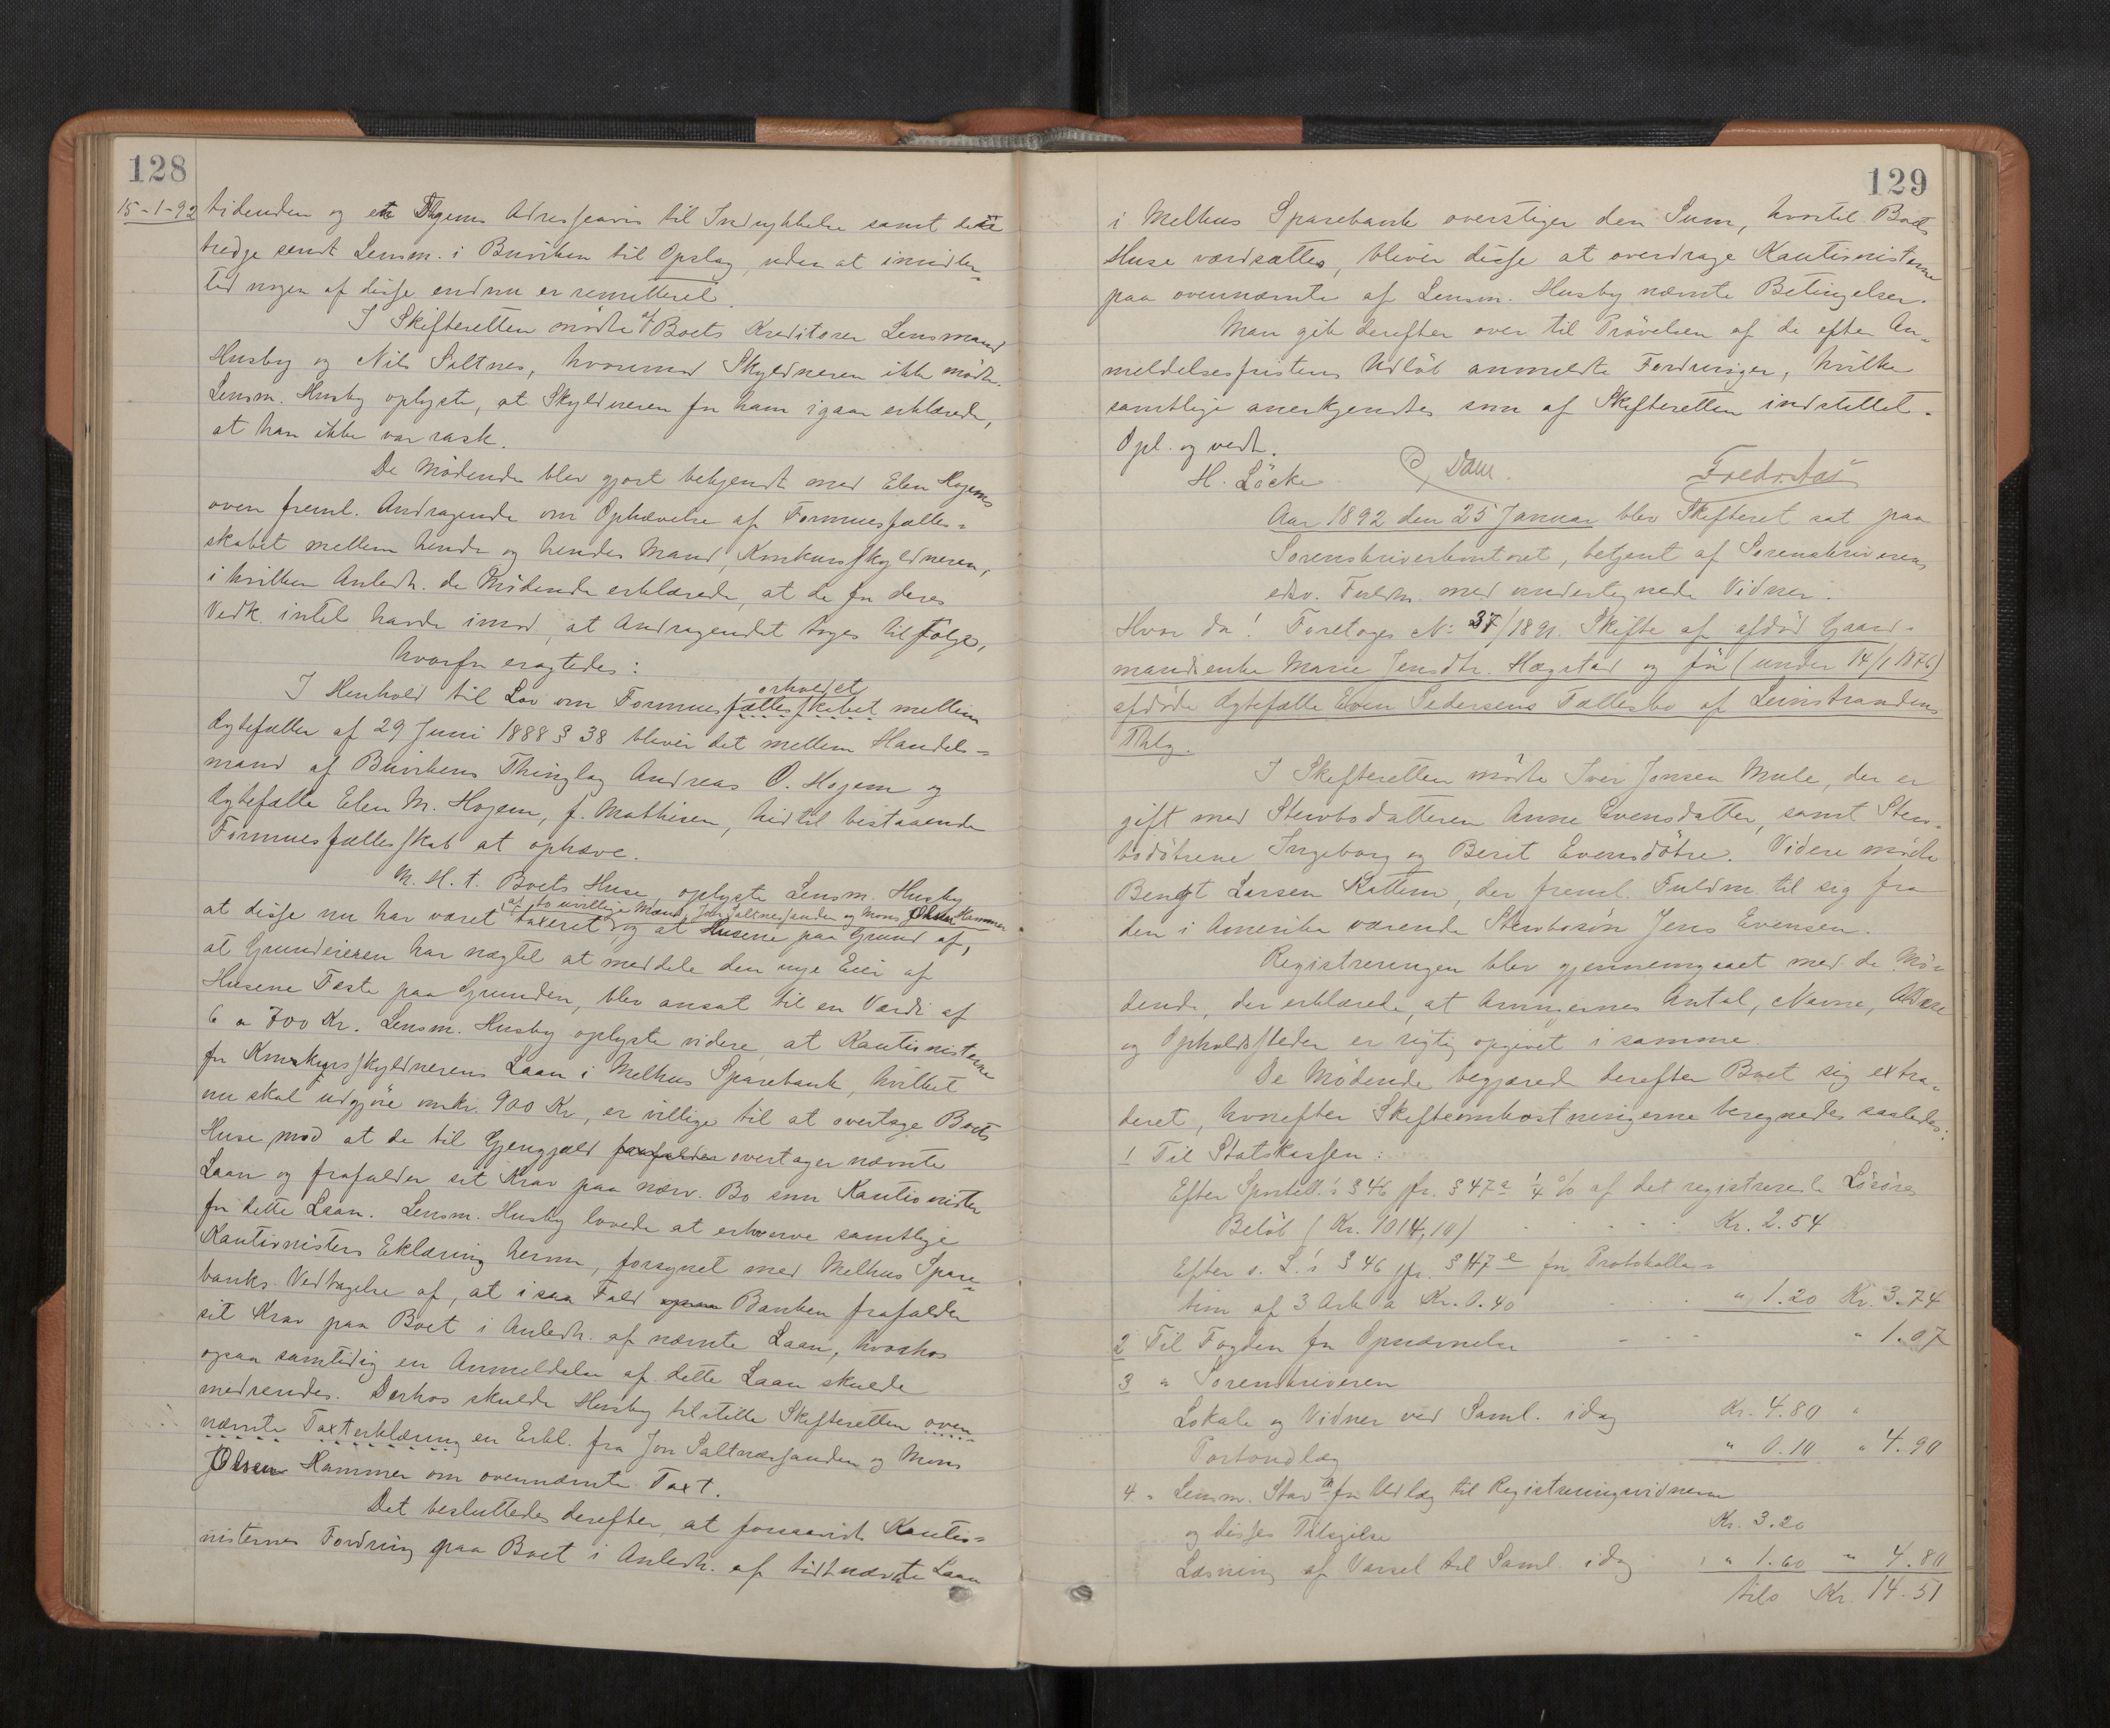 128
15-1-92
tidenden og et Thjems Adresseavis til Indrykkelse samt det
tredje sendt Lensm. i Buviken til Opslag, uden at imidler-
tid nogen af disse endnu er remitteret.
I Skifteretten mødte af Boets Kreditorer Lensmand
Husby og Nils Saltnes, hvorimod Skyldneren ikke mødte.
Lensm. Husby oplyste, at Skyldneren for ham igaar erklærede,
at han ikke var rask.
De Mødende blev gjort bekjendt med Elen Hogems
oven freml. Andragende om Ophævelse af Formuesfælles-
skabet mellem hende og hendes Mand, Konkursskyldneren,
i hvilken Anledn. de Mødende erklærede, at de for deres
Vedk. intet havde imod, at Andragendet toges tilfølge,
hvorfor eragtedes:
I Henhold til Lov om Formuesfællesskabet mellem
orholdet
Ægtefæller af 29 Juni 1888 § 38 bliver det mellem Handels-
mand af Buvikens Thinglag Andreas O. Hogem og
Ægtefælle Elen M. Hogem, f. Mathisen, hidtil bestaaende
Formuesfællesskab at ophæve.
M. H. t. Boets Huse oplyste Lensm. Husby
af to uvillige Mænd, Jon Saltnessanden og Mons Olsen Hammer
at disse nu har været taxeret, og at Husene paa Grund af,
at Grundeieren har nægtet at meddele den nye Eier af
Husene Fæste paa Grunden, blev ansat til en Værdi af
6 a 700 Kr. Lensm. Husby oplyste videre, at Kautionisterne
for Konkursskyldnerens Laan i Melhus Sparebank, hvilket
nu skal udgjøre omkr. 900 Kr, er villige til at overtage Boets
Huse mod at de til Gjengjæld frafalder overtager nævnte
Laan og frafalder sit Krav paa nærv. Bo som Kautionister
for dette Laan. Lensm. Husby lovede at erhverve samtlige
Kautionisters Erklæring herom, forsynet med Melhus Spare-
banks Vedtagelse af, at i saa Fald ogsaa Banken frafalder
sit Krav paa Boet i Anledn. af nævnte Laan, hvorhos
ogsaa samtidig en Anmeldelse af dette Laan skulde
medsendes. Derhos skulde Husby tilstille Skifteretten oven
nævnte Taxterklæring en Erkl. fra Jon Saltnessanden og Mons
Olsen Hammer om ovennævnte Taxt.
Det besluttedes derefter, at forsaavidt Kautio-
nisternes Fordring paa Boet i Anledn. af tidtnævnte Laan
129
i Melhus Sparebank overstiger den Sum, hvortil Boets
Huse værdsættes, bliver disse at overdrage Kautionisterne
paa ovennævnte af Lensm. Husby nævnte Betingelser.
Man gik derefter over til Prøvelsen af de efter An-
meldelsesfristens Udløb anmeldte Fordringer, hvilke
samtlige anerkjendtes som af Skifteretten indstillet.
Opl. og vedt.
H. Löcke
Aar 1892 den 25 Januar blev Skifteret sat paa
Sorenskriverkontoret, betjent af Sorenskriverens
edsv. Fuldm. med undertegnede Vidner.
Hvor da! Foretoges No 37/1891. Skifte af afdød Gaard-
mandsenke Marie Jensdtr. Hægstad og før (under 14/1 1876)
afdøde Ægtefælle Even Pedersens Fællesbo af Leinstrandens
Thlg.
I Skifteretten mødte Iver Jonsen Mule, der er
gift med Stervbodatteren Anne Evensdatter, samt Sterv-
bodøtrene Ingeborg og Berit Evensdøtre. Videre mødte
Bengt Larsen Kattem, der freml. Fuldm. til sig fra
den i Amerika værende Stervbosøn Jens Evensen.
Registreringen blev gjennemgaaet med de Mø-
dende, der erklærede, at Arvingernes Antal, Navne, Aldere
og Opholdssteder er rigtig opgivet i samme.
De Mødende begjærede derefter Boet sig extra-
deret, hvorefter Skifteomkostningerne beregnedes saaledes:
1 Til Statskassen:
Efter Sportell.s § 46 jfr. § 47 a 1/4 % af det registrerede Løsøres
Beløb (Kr. 1014,10) Kr. 2.54
Efter s. L.s § 46 jfr. § 47 e for Protokolla-
tion af 3 Ark a Kr. 0.40 " 1.20 Kr. 3.74
2 Til Fogden for Opnævnelse " 1.07
3 " Sorenskriveren
Lokale og Vidner ved Saml. idag Kr. 4.80 "
Portoudlæg " 0.10 " 4.90
4 " Lensm. Stav for Udlæg til Registreringsvidnerne
og disses Tilsigelse Kr. 3.20
Læsning af Varsel til Saml. idag " 1.60 " 4.80
tils Kr. 14.51